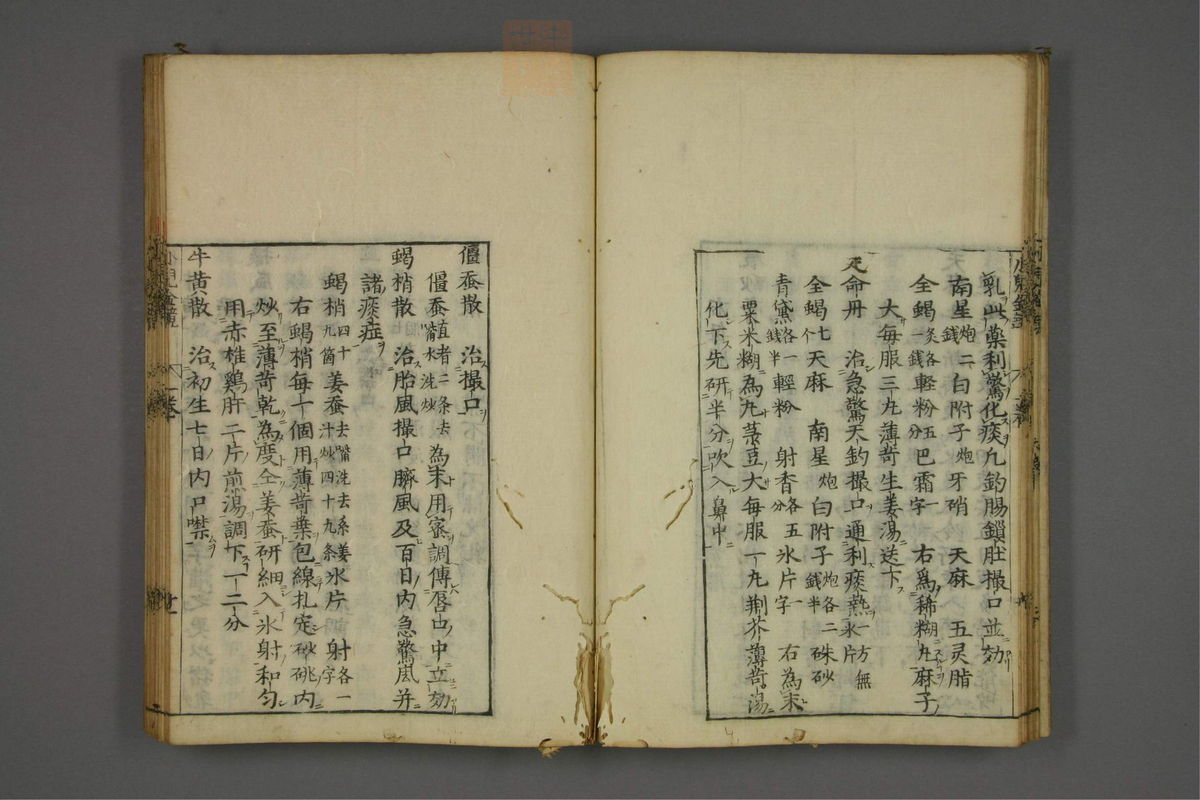 乳此藥利驚化痰凢釣腸鎖肚撮口並効
南星炮二錢白附子炮牙硝 天麻 五灵脂
全蝎炙各一錢輕粉五分巴霜一字 右爲稀糊丸麻子
大每服三丸薄苛生姜湯送下
定命丹 治急驚天釣撮口通利痰熱一方無氷片
全蝎七个天麻 南星炮白附子炮各二錢半硃砂
青黛各一錢半輕粉 射香各五分氷片一字 右為末
粟米糊為丸菉豆大每服一丸荆芥薄苛湯
化下先研半分吹入鼻中
僵蚕散 治撮口
僵蚕直者二条去觜水洗炒為末用蜜調傅唇口中立効
蝎梢散 治胎風撮口臍風及百日內急驚風并
諸痰症
蝎梢四十九箇姜蚕去觜洗去系姜汁炒四十九条氷片 射各一字
右蝎梢每一個用薄苛葉包線扎定砂銚內
炒至薄苛乾為度仝姜蚕研細入氷射和匀
用赤椎鷄肝二片煎湯調下一二分
牛黃散 治初生七日內口噤